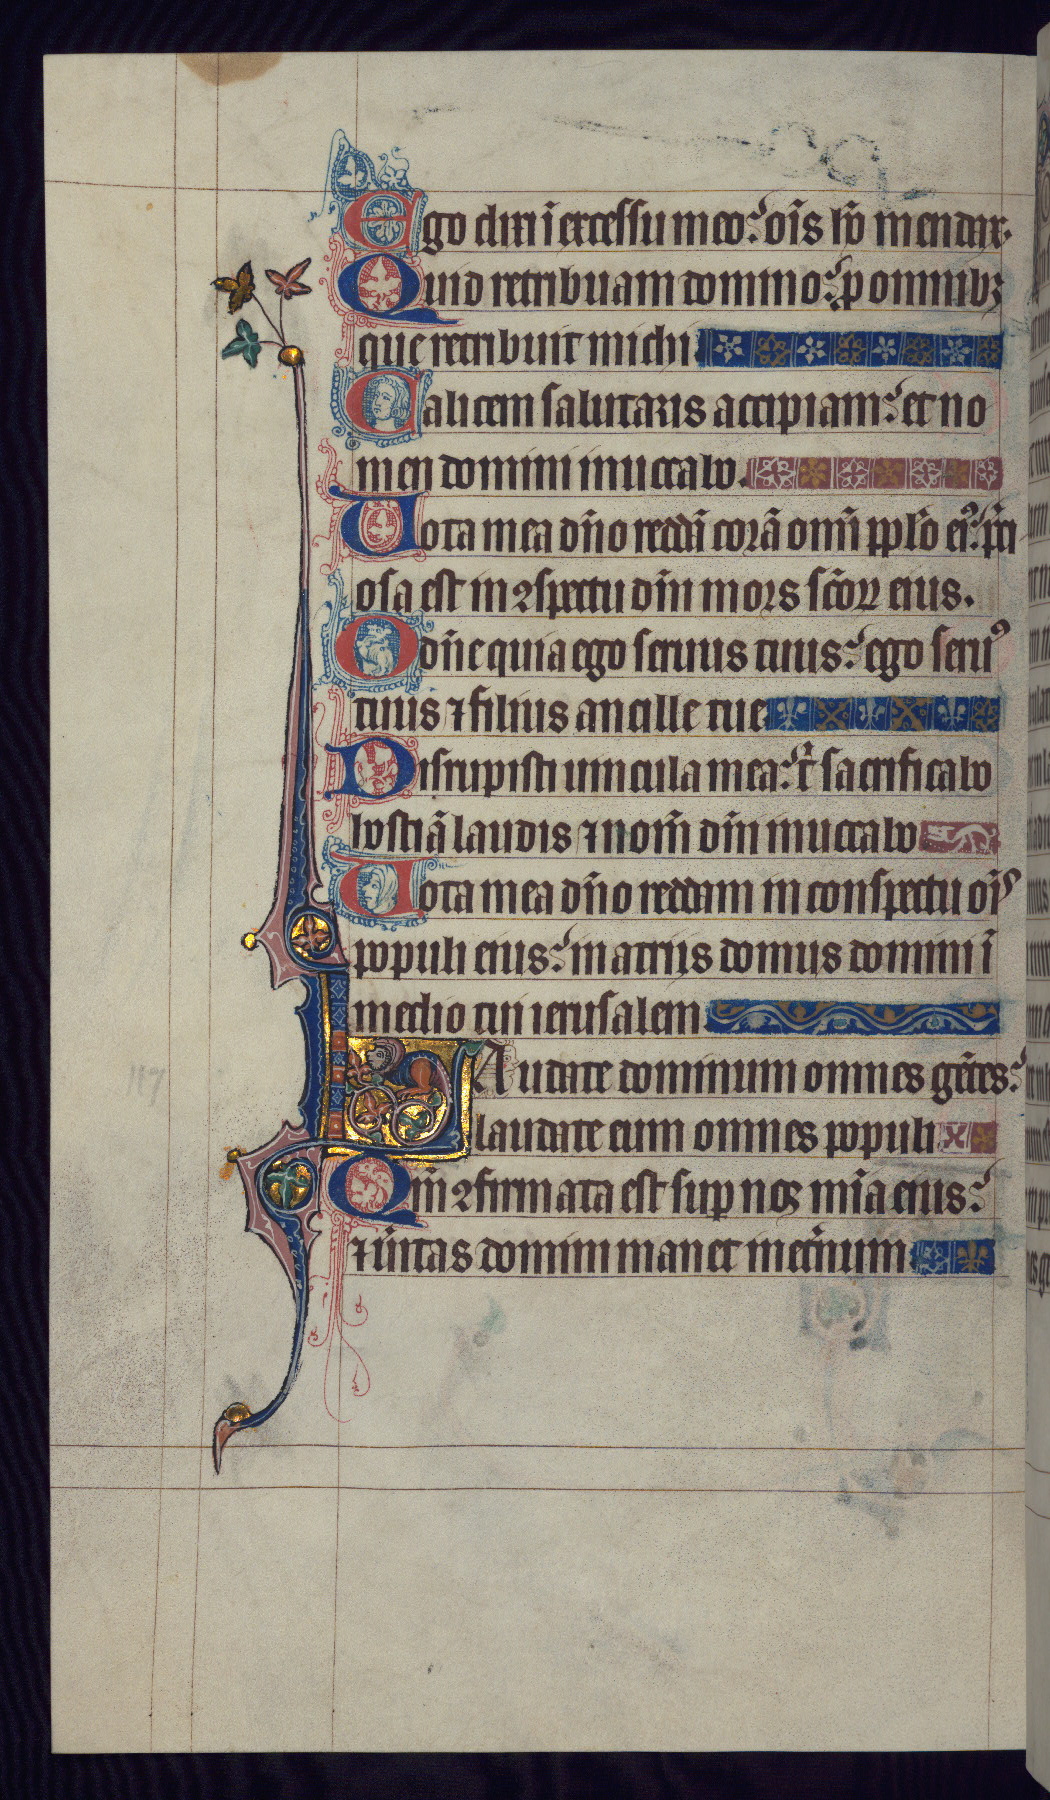 Ego dixi ī excessu meo: oīs hō mendax.
Quid retribuam domino: p omnibꝫ
que retribuit michi
Calicem salutaris accipiam: et no
men domini inuocabo.
Uota mea dn̄o reddā corā omī pplo eiꝰ: p̄ci
osa est in ꝯspectu dn̄i mors sc̄oꝝ eius.
O dn̄e quia ego seruus tuus: ego seruꝰ
tuus ⁊ filius ancille tue
Disrupisti uincula mea: t̄ sacrificabo
hostiā laudis ⁊ nom̄ dn̄i inuocabo
Uota mea dn̄o reddam in conspectu oīs
populi eius: in atrijs domus domini ī
medio tui ierusalem
LAudate dominum omnes gētes:
laudate eum omnes populi
Qm̄ ꝯfirmata est sup nos mīa eius:
⁊ ūitas domini manet inet̄num
117